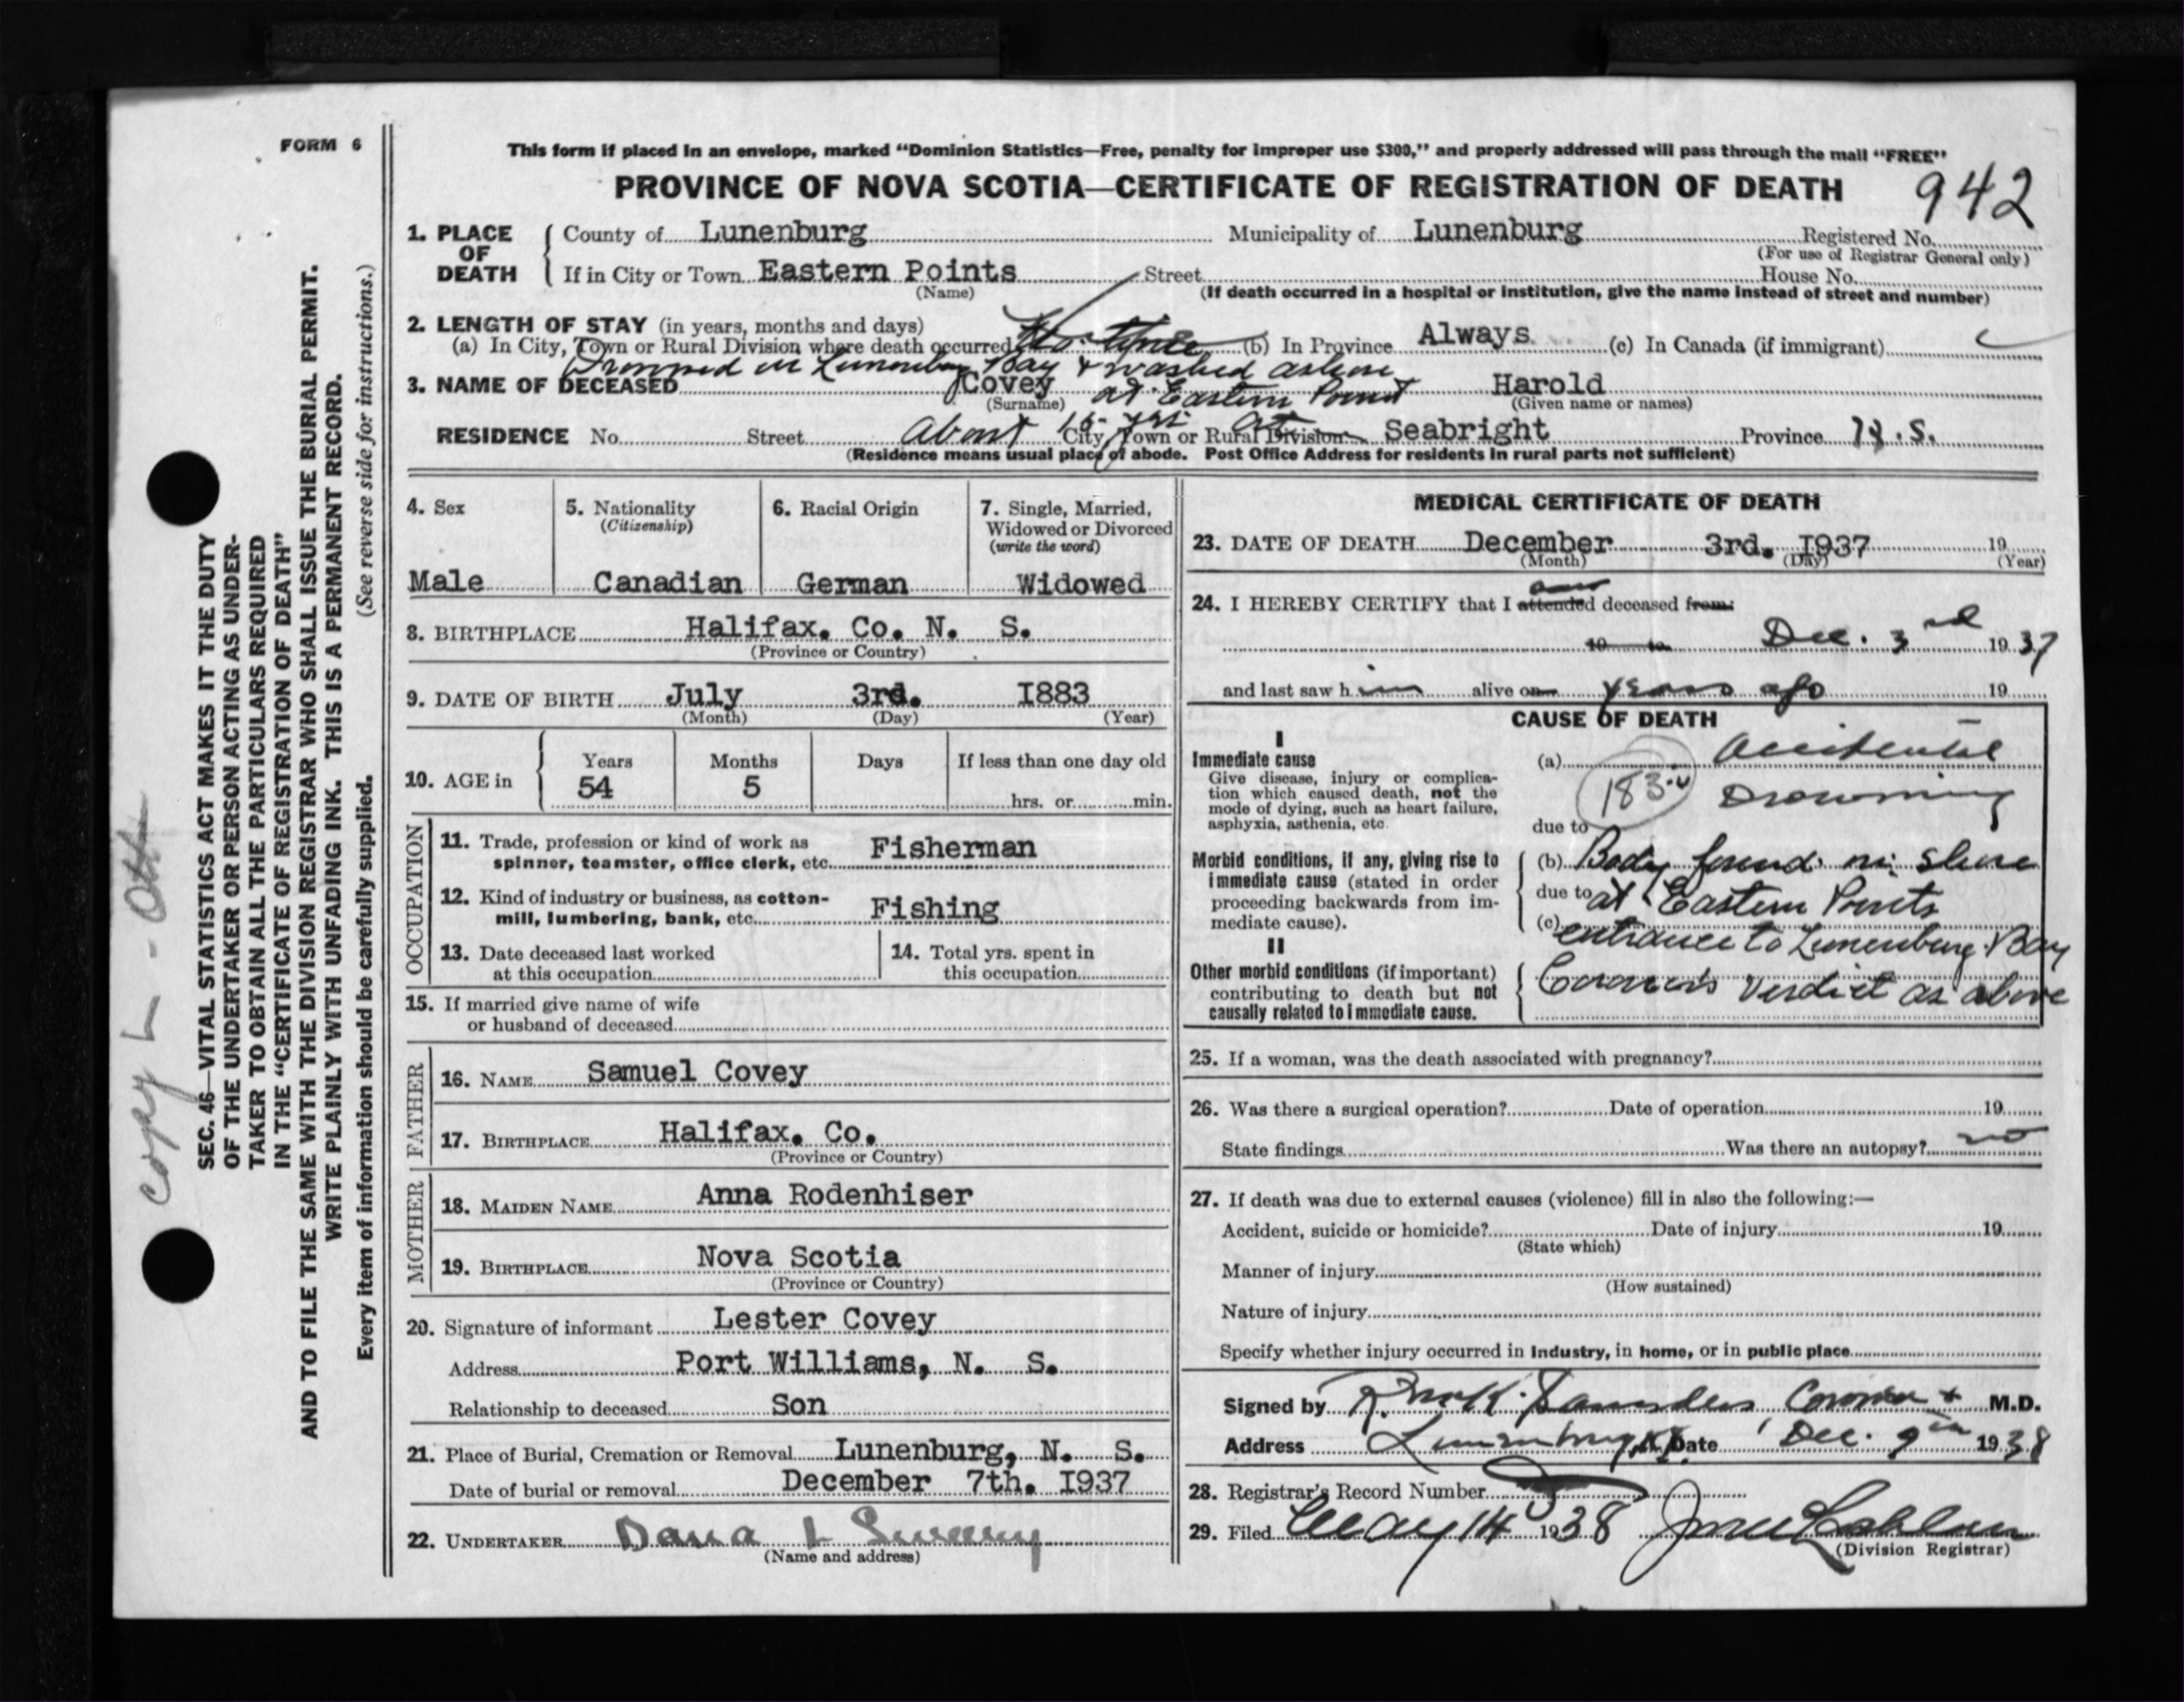 FORM 6
This form if placed in an envelope, marked “Dominion Statistics—Free, penalty for improper use $300,” and properly addressed will pass through the mail “FREE”
PROVINCE OF NOVA SCOTIA—CERTIFICATE OF REGISTRATION OF DEATH
942
1. PLACE OF DEATH
County of Lunenburg Municipality of Lunenburg Registered No.
(For use of Registrar General only)
If in City or Town Eastern Points Street House No.
(Name) (If death occurred in a hospital or institution, give the name instead of street and number)
2. LENGTH OF STAY (in years, months and days)
(a) In City, Town or Rural Division where death occurred No time (b) In Province Always (c) In Canada (if immigrant)
Drowned in Lunenburg Bay & washed ashore
at Eastern Point
3. NAME OF DECEASED Covey Harold
(Surname) (Given name or names)
About 15 yrs at
RESIDENCE No. Street City, Town or Rural Division Seabright Province N.S.
(Residence means usual place of abode. Post Office Address for residents in rural parts not sufficient)
4. Sex
Male
5. Nationality
(Citizenship)
Canadian
6. Racial Origin
German
7. Single, Married,
Widowed or Divorced
(write the word)
Widowed
8. BIRTHPLACE Halifax. Co. N. S.
(Province or Country)
9. DATE OF BIRTH July 3rd. I883
(Month) (Day) (Year)
10. AGE in
Years Months Days If less than one day old
54 5 hrs. or min.
OCCUPATION
11. Trade, profession or kind of work as
spinner, teamster, office clerk, etc. Fisherman
12. Kind of industry or business, as cotton-
mill, lumbering, bank, etc. Fishing
13. Date deceased last worked
at this occupation
14. Total yrs. spent in
this occupation
15. If married give name of wife
or husband of deceased
FATHER
16. NAME Samuel Covey
17. BIRTHPLACE Halifax. Co.
(Province or Country)
MOTHER
18. MAIDEN NAME Anna Rodenhiser
19. BIRTHPLACE Nova Scotia
(Province or Country)
20. Signature of informant Lester Covey
Address Port Williams, N. S.
Relationship to deceased Son
21. Place of Burial, Cremation or Removal Lunenburg, N. S.
Date of burial or removal December 7th. I937
22. UNDERTAKER Dana L Sweeny
(Name and address)
MEDICAL CERTIFICATE OF DEATH
23. DATE OF DEATH December 3rd. I937 19
(Month) (Day) (Year)
24. I HEREBY CERTIFY that I attended saw deceased from:
19 to Dec. 3rd 1937
and last saw him alive on years ago 19
CAUSE OF DEATH
I
Immediate cause
Give disease, injury or complica-
tion which caused death, not the
mode of dying, such as heart failure,
asphyxia, asthenia, etc.
(a) Accidental
Drowning
due to
Morbid conditions, if any, giving rise to
immediate cause (stated in order
proceeding backwards from im-
mediate cause).
(b) Body found on shore
due to at Eastern Points
(c) entrance to Lunenburg Bay
II
Other morbid conditions (if important)
contributing to death but not
causally related to immediate cause.
Coroner's verdict as above
25. If a woman, was the death associated with pregnancy?
26. Was there a surgical operation? Date of operation 19
State findings Was there an autopsy? no
27. If death was due to external causes (violence) fill in also the following:—
Accident, suicide or homicide? Date of injury 19
(State which)
Manner of injury
(How sustained)
Nature of injury
Specify whether injury occurred in industry, in home, or in public place
Signed by R. McK. Saunders, Coroner + M.D.
Address Lunenburg, N.S. Date Dec. 9th 1938
28. Registrar's Record Number
29. Filed May 14 1938
(Division Registrar)
SEC. 46—VITAL STATISTICS ACT MAKES IT THE DUTY
OF THE UNDERTAKER OR PERSON ACTING AS UNDER-
TAKER TO OBTAIN ALL THE PARTICULARS REQUIRED
IN THE “CERTIFICATE OF REGISTRATION OF DEATH”
AND TO FILE THE SAME WITH THE DIVISION REGISTRAR WHO SHALL ISSUE THE BURIAL PERMIT.
WRITE PLAINLY WITH UNFADING INK. THIS IS A PERMANENT RECORD.
Every item of information should be carefully supplied. (See reverse side for instructions.)
copy L -